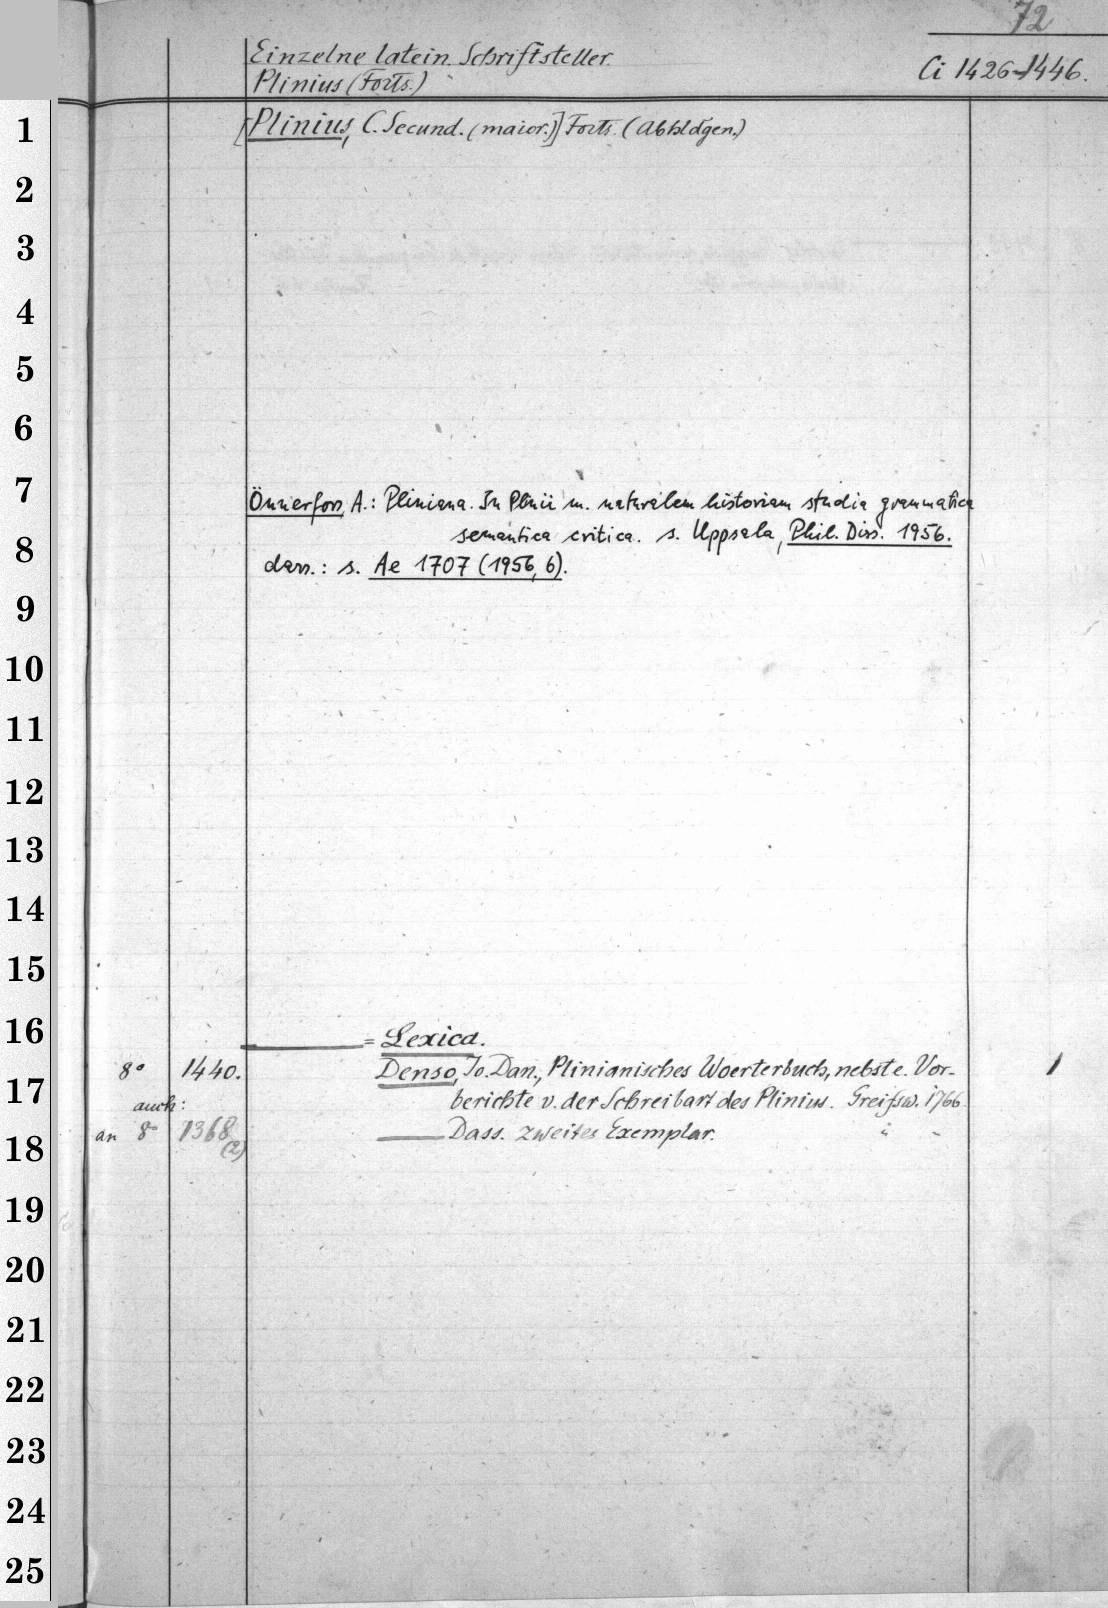 72
Einzelne latein. Schriftsteller.
Plinius (Forts.)
Ci 1426-1446.
1
[Plinius, C. Secund. (maior.)] Forts. (Abhldgen.)
2
3
4
5
6
7
Önnerfors, A.: Pliniana. In Plinii m. naturalem historiam studia grammatica
8
semantica critica. s. Uppsala, Phil. Diss. 1956.
dass.: s. Ae 1707 (1956, 6).
9
10
11
12
13
14
15
16
= Lexica.
8° 1440. Denso, Jo. Dan., Plinianisches Woerterbuch, nebst e. Vor-
17
berichte v. der Schreibart des Plinius. Greifsw. 1766.
auch:
an 8° 1368 Dass. zweites Exemplar. " "
(2)
18
19
20
21
22
23
24
25